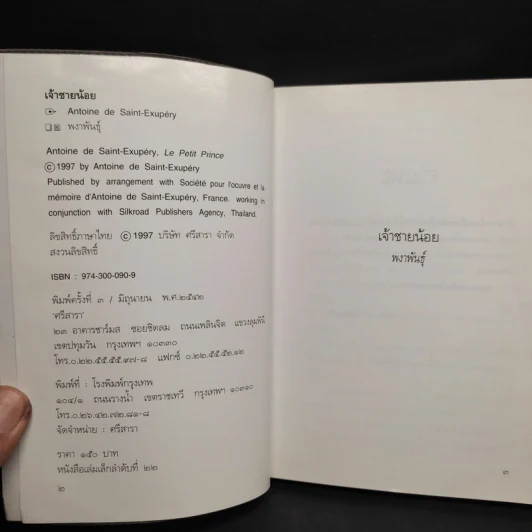 เจ้าชายน้อย
Antoine de Saint-Exupéry
พงาพันธุ์
Antoine de Saint-Exupéry, Le Petit Prince
©1997 by Antoine de Saint-Exupéry
Published by arrangement with Société pour l'oeuvre et la
mémoire d'Antoine de Saint-Exupéry, France. working in
conjunction with Silkroad Publishers Agency, Thailand.
ลิขสิทธิ์ภาษาไทย ©1997 บริษัท ศรีสารา จำกัด
สงวนลิขสิทธิ์
ISBN : 974-300-090-9
พิมพ์ครั้งที่ ๓ / มิถุนายน พ.ศ.๒๕๔๒
'ศรีสารา'
๒๓ อาคารชาร์มส ซอยชิดลม ถนนเพลินจิต แขวงลุมพินี
เขตปทุมวัน กรุงเทพฯ ๑๐๓๓๐
โทร.๐.๒๒.๕๕.๕๕.๙๗-๘ แฟกซ์ ๐.๒๒.๕๕.๕๒.๑๒
พิมพ์ที่ : โรงพิมพ์กรุงเทพ
๑๐๔/๑ ถนนรางน้ำ เขตราชเทวี กรุงเทพฯ ๑๐๓๑๐
โทร.๐.๒๖.๔๒.๗๒.๘๑-๘
จัดจำหน่าย : ศรีสารา
ราคา ๑๕๐ บาท
หนังสือเล่มเล็กลำดับที่ ๒๒
๒
เจ้าชายน้อย
พงาพันธุ์
๓